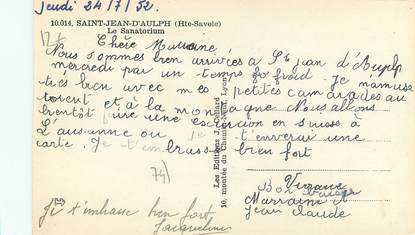 jeudi 24/7/52.
10.014, SAINT-JEAN-D'AULPH (Hte-Savoie)
Le Sanatorium
Chère Marraine
Nous sommes bien arrivées à St jean d'Aulph
mercredi par un temps froid. Je m'amuse
très bien avec mes petites camarades au
torent et à la montagne Nous allons
bientôt faire une excurcion en suisse à
Lausanne ou je t'enverai une
carte. Je t'embrasse bien fort
Viviane
Bon baiser
Marraine et
jean claude
74)
Je t'embrasse bien fort
Jacqueline
Les Editions J. Gaillard
10, montée du Chemin-Neuf, Lyon